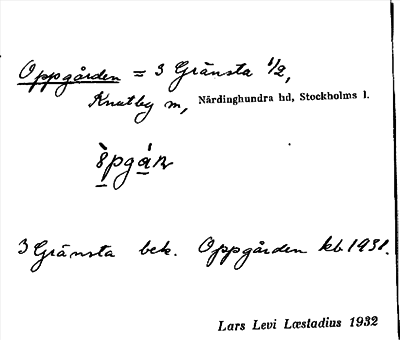 Oppgården = 3 Gränsta 1/2,
Knutby sn, Närdinghundra hd, Stockholms l.
3 Gränsta bek. Oppgården kb 1931.
Lars Levi Læstadius 1932